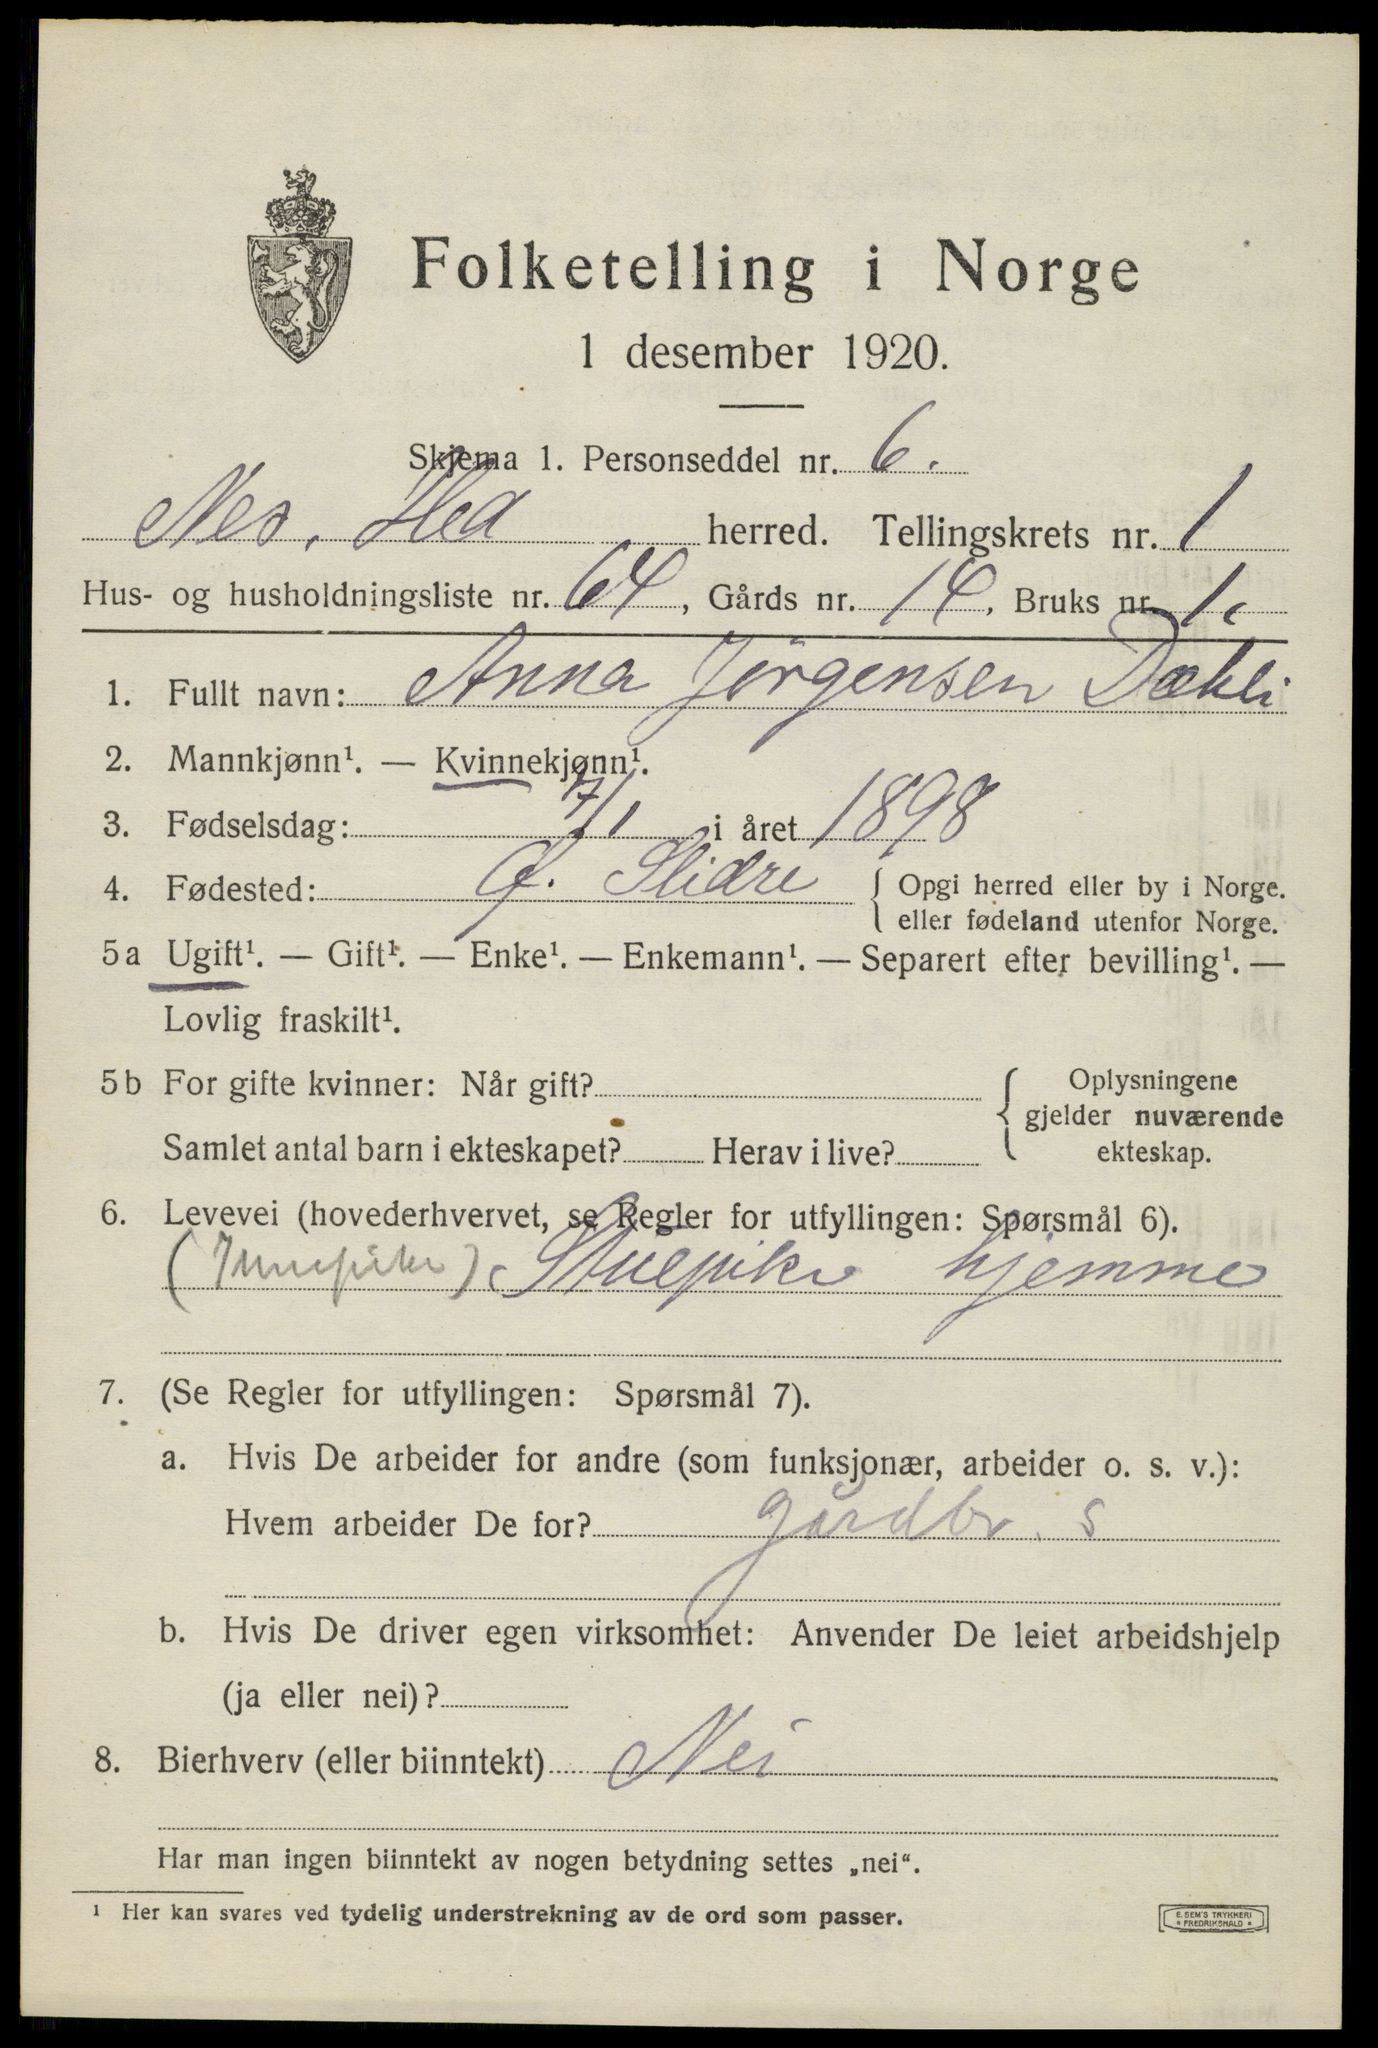 Folketelling i Norge
1 desember 1920.
Skjema 1. Personseddel nr. 6.
Nes, Hed herred. Tellingskrets nr. 1
Hus- og husholdningsliste nr. 64, Gårds nr. 14, Bruks nr. 1.
1. Fullt navn: Anna Jørgensen Dæhli
2. Mannkjønn¹. — Kvinnekjønn¹.
3. Fødselsdag: 7/1 i året 1898
4. Fødested: Ø. Slidre { Opgi herred eller by i Norge.
eller fødeland utenfor Norge.
5a Ugift¹. — Gift¹. — Enke¹. — Enkemann¹. — Separert efter bevilling¹. —
Lovlig fraskilt¹.
5b For gifte kvinner: Når gift?
Samlet antal barn i ekteskapet? Herav i live?
{ Oplysningene
gjelder nuværende
ekteskap.
6. Levevei (hovederhvervet, se Regler for utfyllingen: Spørsmål 6).
(Innepike) Stuepike hjemme
7. (Se Regler for utfyllingen: Spørsmål 7).
a. Hvis De arbeider for andre (som funksjonær, arbeider o. s. v.):
Hvem arbeider De for? gårdbr. s
b. Hvis De driver egen virksomhet: Anvender De leiet arbeidshjelp
(ja eller nei)?
8. Bierhverv (eller biinntekt) Nei
Har man ingen biinntekt av nogen betydning settes „nei“.
¹ Her kan svares ved tydelig understrekning av de ord som passer.
E. SEM'S TRYKKERI
* FREDRIKSHALD *